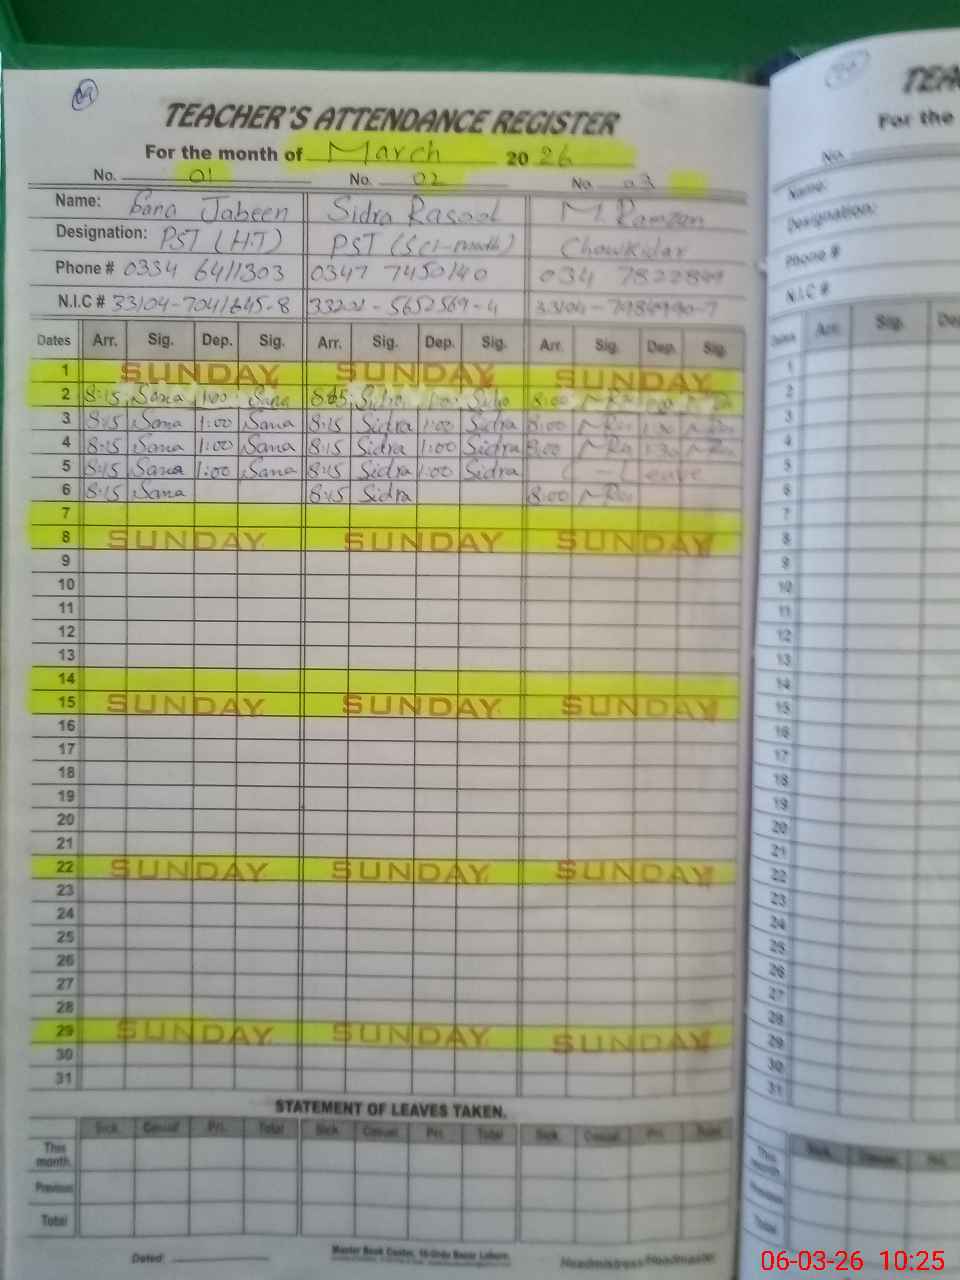 TEACHER'S ATTENDANCE REGISTER
For the month of March 20 26
No. 01 No. 02 No. 03
Name: Sana Jabeen Sidra Rasool M. Ramzan
Designation: PST (H.T) PST (Sci-math) Chowkidar
Phone # 0334 6411303 0347 7450140 034 7822899
N.I.C # 33104-7041645-8
Dates Arr. Sig. Dep. Sig. Arr. Sig. Dep. Sig. Arr. Sig. Dep. Sig.
1 SUNDAY SUNDAY SUNDAY
2 8:15 Sana 1:00 Sana Sidra 1:00 8:00
3 8:15 Sana 1:00 Sana 8:15 Sidra 1:00 Sidra 8:00
4 8:15 Sana 1:00 Sana 8:15 Sidra 1:00 Sidra 8:00 1:30
5 8:15 Sana 1:00 Sana 8:15 Sidra 1:00 Sidra Leave
6 8:15 Sana 8:15 Sidra 8:00
7
8 SUNDAY SUNDAY SUNDAY
9
10
11
12
13
14
15 SUNDAY SUNDAY SUNDAY
16
17
18
19
20
21
22 SUNDAY SUNDAY SUNDAY
23
24
25
26
27
28
29 SUNDAY SUNDAY SUNDAY
30
31
STATEMENT OF LEAVES TAKEN.
Sick Casual Pri. Total Sick Casual Pri. Total Sick Casual Pri. Total
This month
Previous
Total
Dated
Master Book Center, 16-Urdu Bazar Lahore.
Headmistress/Headmaster
For the
No.
Name:
Designation:
Phone #
N.I.C #
Dates Arr. Sig.
1
2
3
4
5
6
7
8
9
10
11
12
13
14
15
16
17
18
19
20
21
22
23
24
25
26
27
28
29
30
31
This month
Previous
Total
06-03-26 10:25